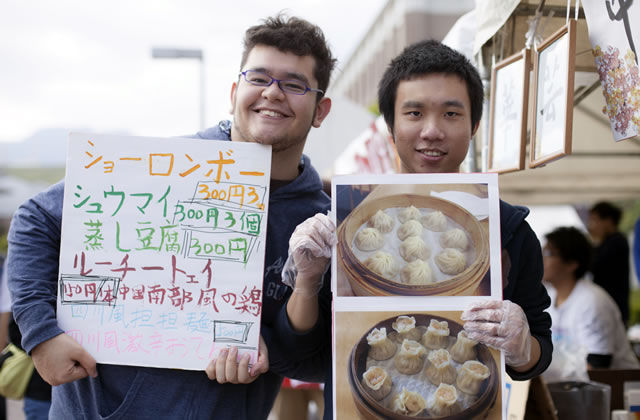 ショーロンボー
300円3
シュウマイ
300円3個
蒸し豆腐
300円
ルーチートェイ
150円
中国南部風の鶏
四川風担担麺
四川風激辛おで